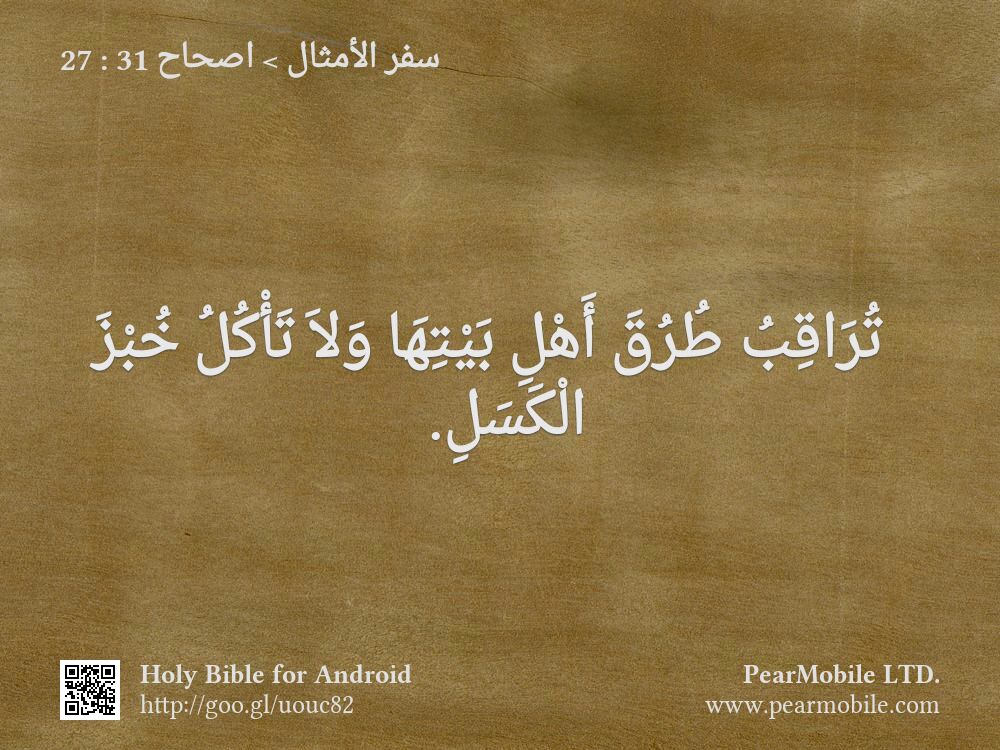 سفر الأمثال > اصحاح 31 : 27
تُرَاقِبُ طُرُقَ أَهْلِ بَيْتِهَا وَلاَ تَأْكُلُ خُبْزَ
الْكَسَلِ.
Holy Bible for Android
http://goo.gl/uouc82
PearMobile LTD.
www.pearmobile.com